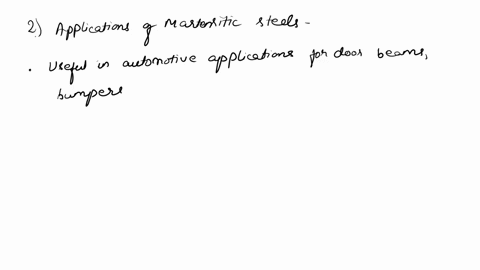 2.) Applications of Martensitic steels -
. Useful in automotive applications for door beams,
bumpers